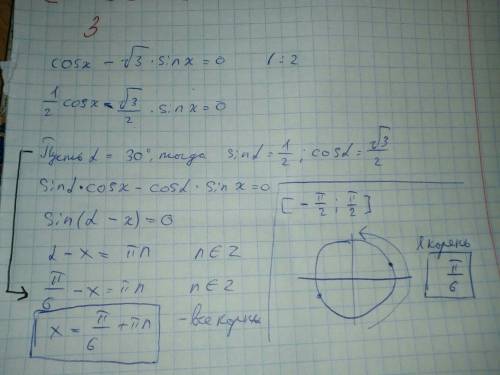 3
cosx - √3 · sinx = 0 / : 2
1/2 cosx - √3/2 · sinx = 0
Пусть α = 30°, тогда sinα = 1/2 ; cosα = √3/2
sinα · cosx - cosα · sinx = 0
sin(α - x) = 0
α - x = πn n ∈ Z
π/6 - x = πn n ∈ Z
x = π/6 + πn - все корни
[ - π/2 ; π/2 ]
1 корень
π/6